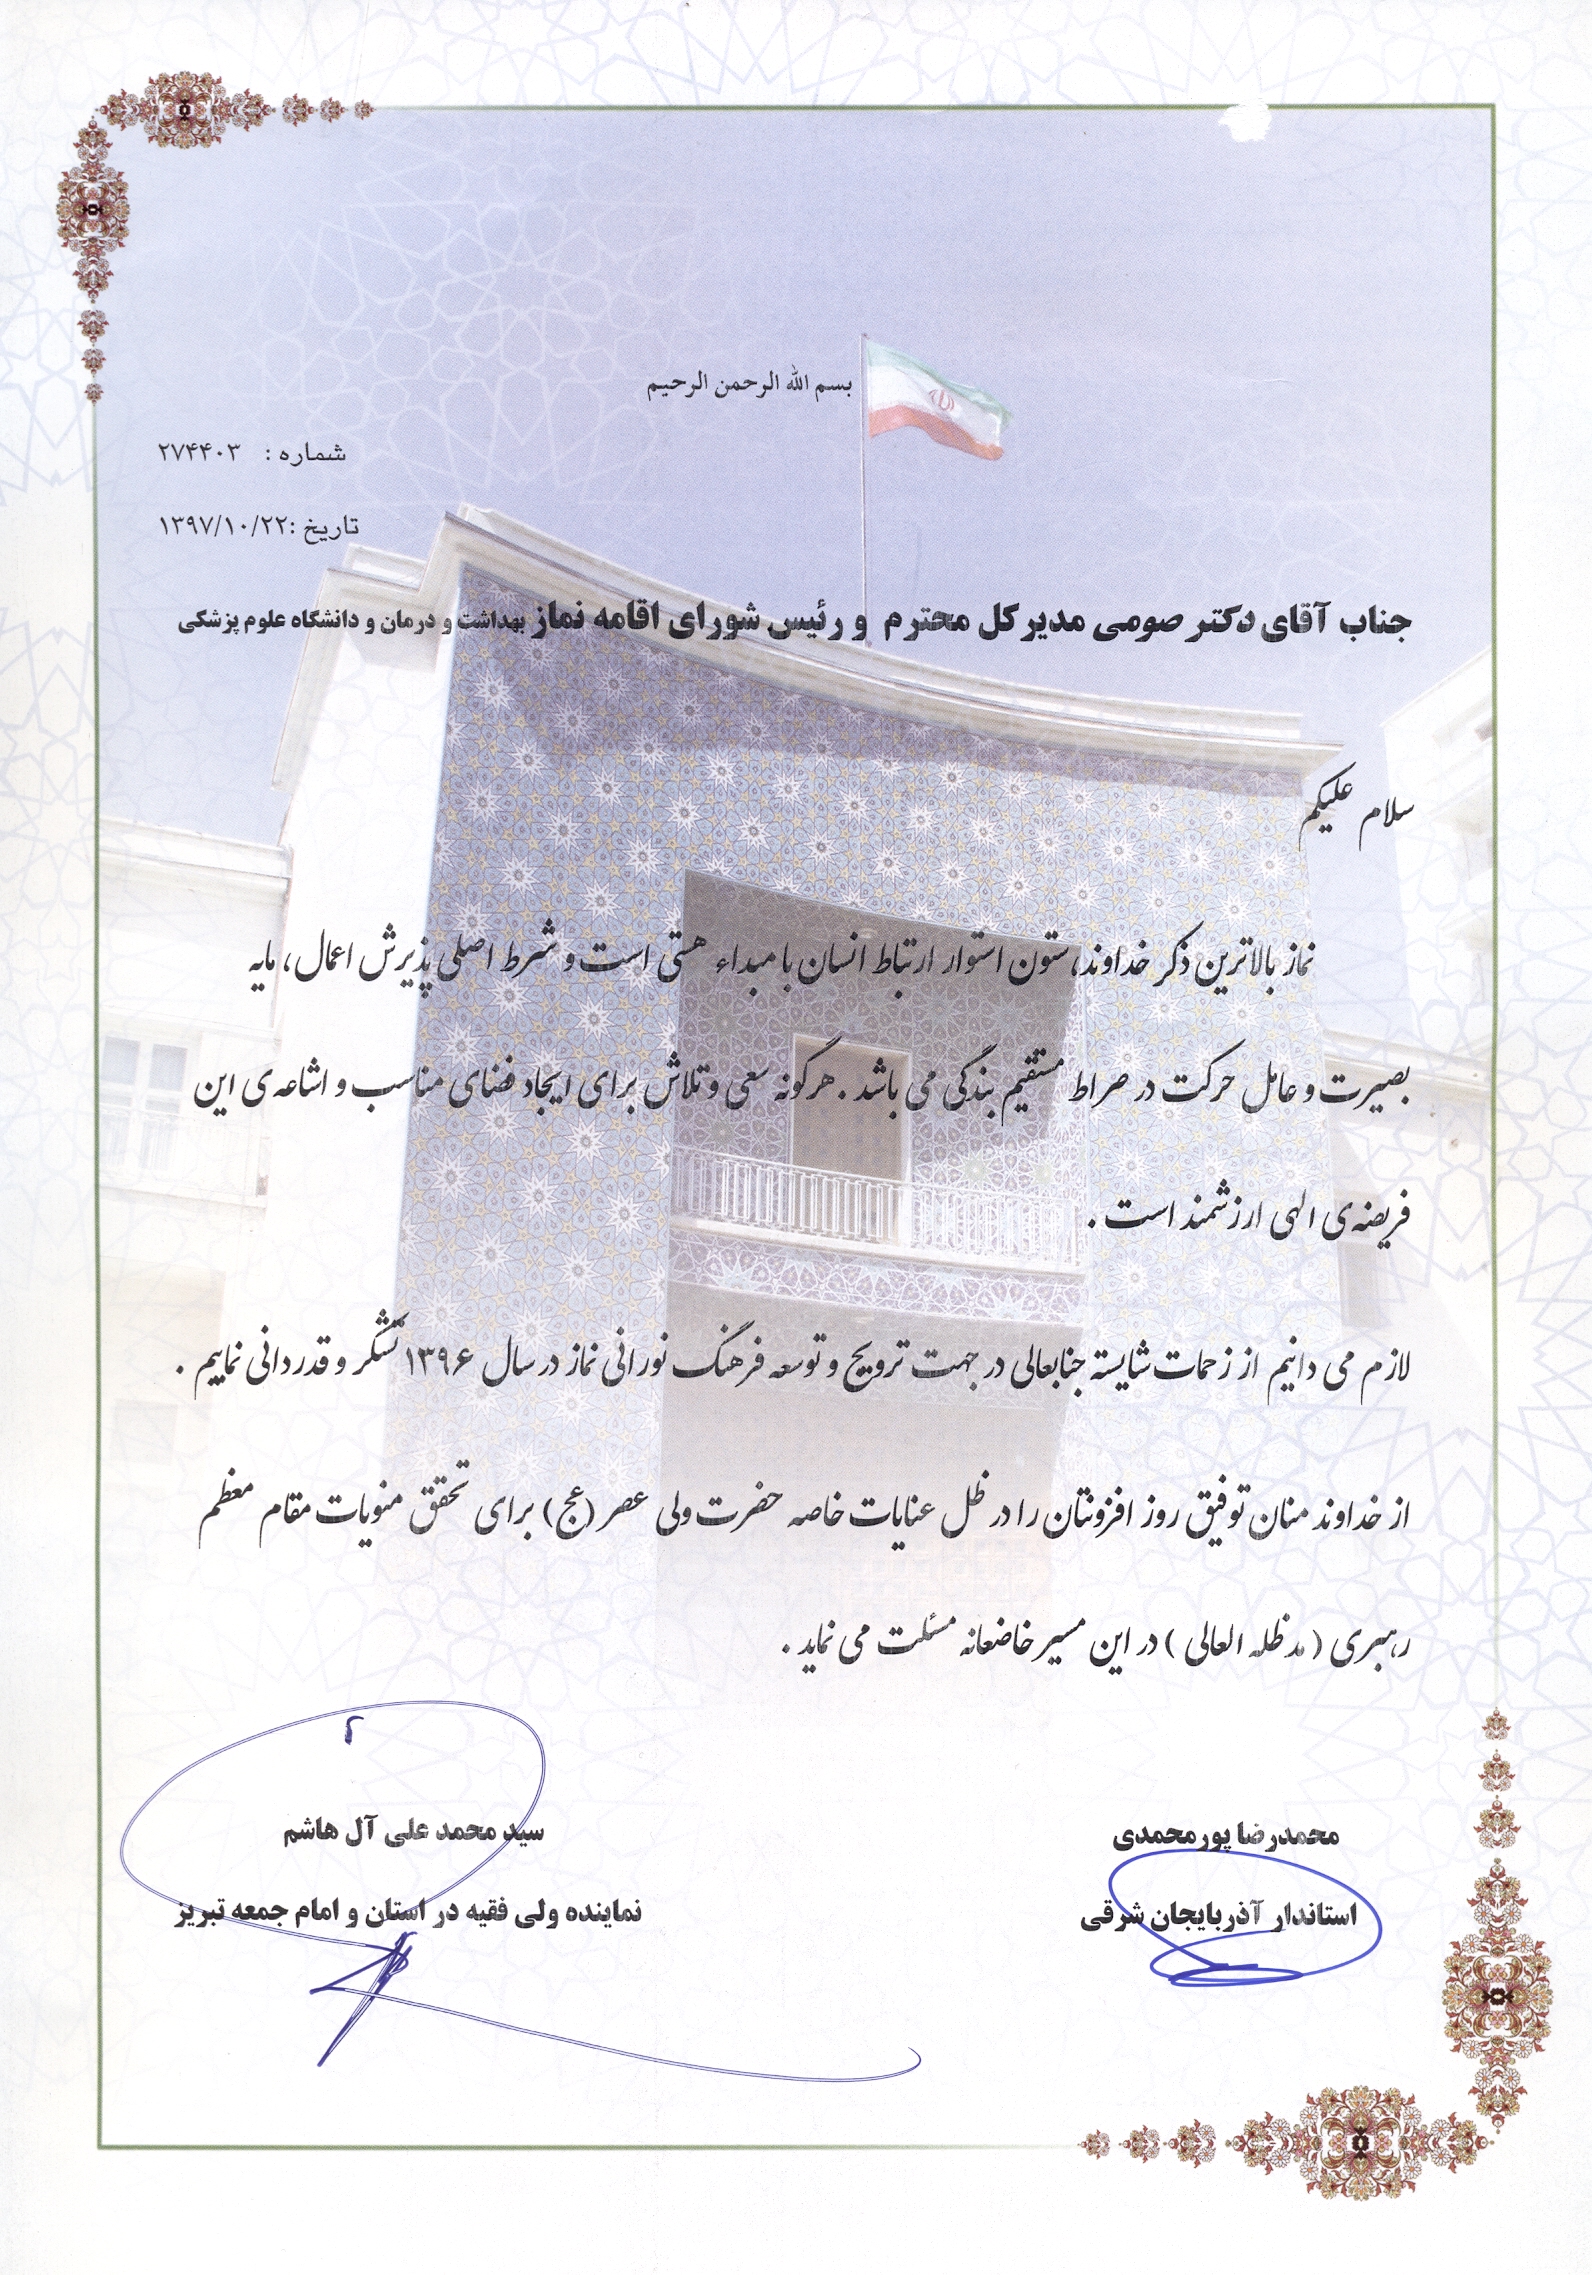 بسم الله الرحمن الرحیم
شماره : ۲۷۴۴۰۳
تاریخ :۱۳۹۷/۱۰/۲۲
جناب آقای دکتر صومی مدیرکل محترم و رئیس شورای اقامه نماز بهداشت و درمان و دانشگاه علوم پزشکی
سلام علیکم
نماز بالاترین ذکر خداوند، ستون استوار ارتباط انسان با مبداء هستی است و شرط اصلی پذیرش اعمال، مایه
بصیرت و عامل حرکت در صراط مستقیم بندگی می باشد . هرگونه سعی و تلاش برای ایجاد فضای مناسب و اشاعه ی این
فریضه ی الهی ارزشمند است .
لازم می دانیم از زحمات شایسته جنابعالی در جهت ترویج و توسعه فرهنگ نورانی نماز در سال ۱۳۹۶ تشکر و قدردانی نماییم .
از خداوند منان توفیق روز افزونتان را در ظل عنایات خاصه حضرت ولی عصر (عج) برای تحقق منویات مقام معظم
رهبری ( مد ظله العالی ) در این مسیر خاضعانه مسئلت می نماید .
محمدرضا پورمحمدی
استاندار آذربایجان شرقی
سید محمد علی آل هاشم
نماینده ولی فقیه در استان و امام جمعه تبریز